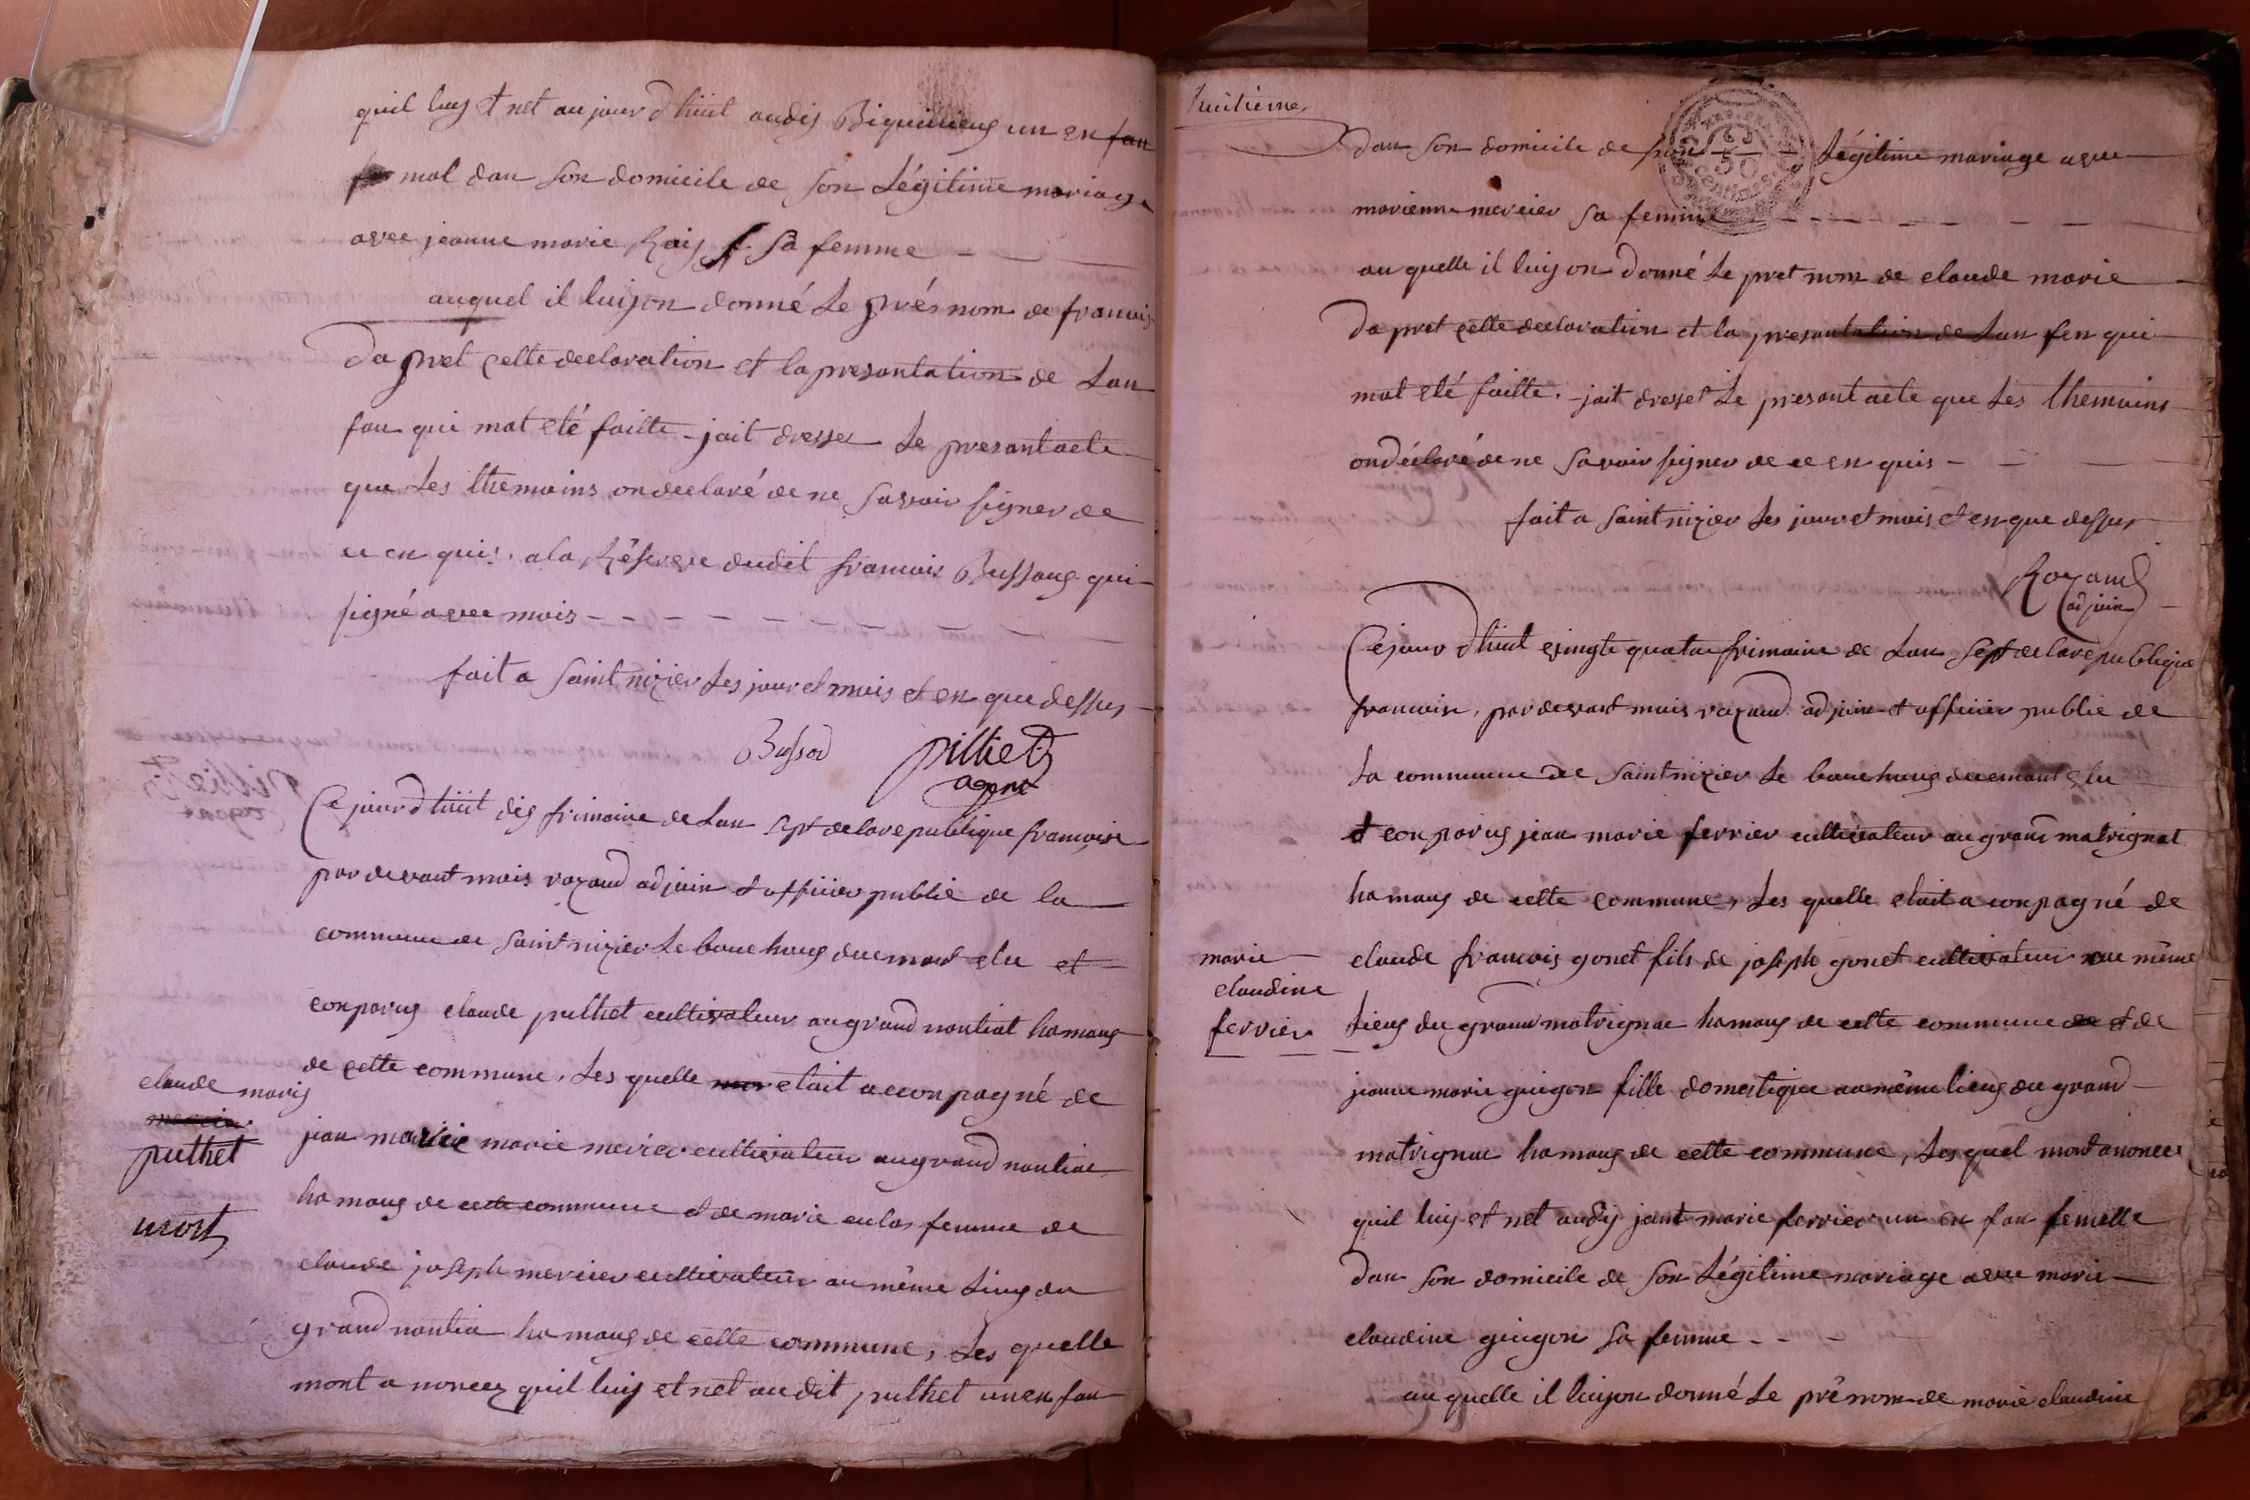 quil luy et net au jour d'huit audis Biguineug un en fan
mal dan son domicile de son Légitime mariage
avec jeanne marie Roij sa femme
auquel il luijon donné Le prés nom de francois
Da pret cette declaration et la presantation de Lan
fan qui mat eté faitte - jait dresser Le presant acte
que Les themoins on declaré de ne savoir signer de
ce en quis. a la Réserve dudit francois Bussong qui
signé avec mois
fait a saint nizier Les jour et mois et en que dessus
Bussod pilliet
agent
Ce jour d'huit dis frimaire de Lan sept de la republique francoise
par devant mois rozand adjoin et officier public de la
commune de saint nizier Le bouchoug duemant elu et
conparus claude puthet cultivateur au grand nontiat hamaug
de cette commune, Les quelle etait acconpagné de
jean marie marie mercier cultivateur au grand nontiat
hamaug de cette commune et de marie culas femme de
claude joseph mercier cultivateur au même Lieug du
grand nontia hamaug de cette commune, Les quelle
mont a noncez quil luij et net audit puthet un en fan
claude maris
puthet
mort
huitieme
dan son domicile de son Légitime mariage avec
marienne mercier sa femme
au quelle il luij on donné Le pret nom de claude marie
Da pret cette declaration et la presantation de Lan fen qui
mat eté faitte. jait dresset Le presant acte que Les themoins
on déclaré de ne savoir signer de ce en quis
fait a saint nizier Les jour et mois et en que dessus
Rozand
adjoin
Ce jour d'huit vingte quatre frimaire de Lan sept de la republique
francoise, par devant mois rozand adjoin et officier public de
La commune de saint nizier Le bouchoug duemant elu
et conparus jean marie ferrier cultivateur au grand matrignat
hamaug de cette commune, Les quelle etait a conpagné de
claude francois gonet fils de joseph gonet cultivateur au même
Lieug du grand matrignac hamaug de cette commune et de
jeanne marie guigon fille domestique au même lieug du grand
matrignac hamaug de cette commune, Lesquel mont anoncer
quil luij et net audis jant marie ferrier un en fan femelle
dan son domicile de son Légitime mariage avec marie
claudine guigon sa femme
au quelle il luijon donné Le prénom de marie claudine
marie
claudine
ferrier